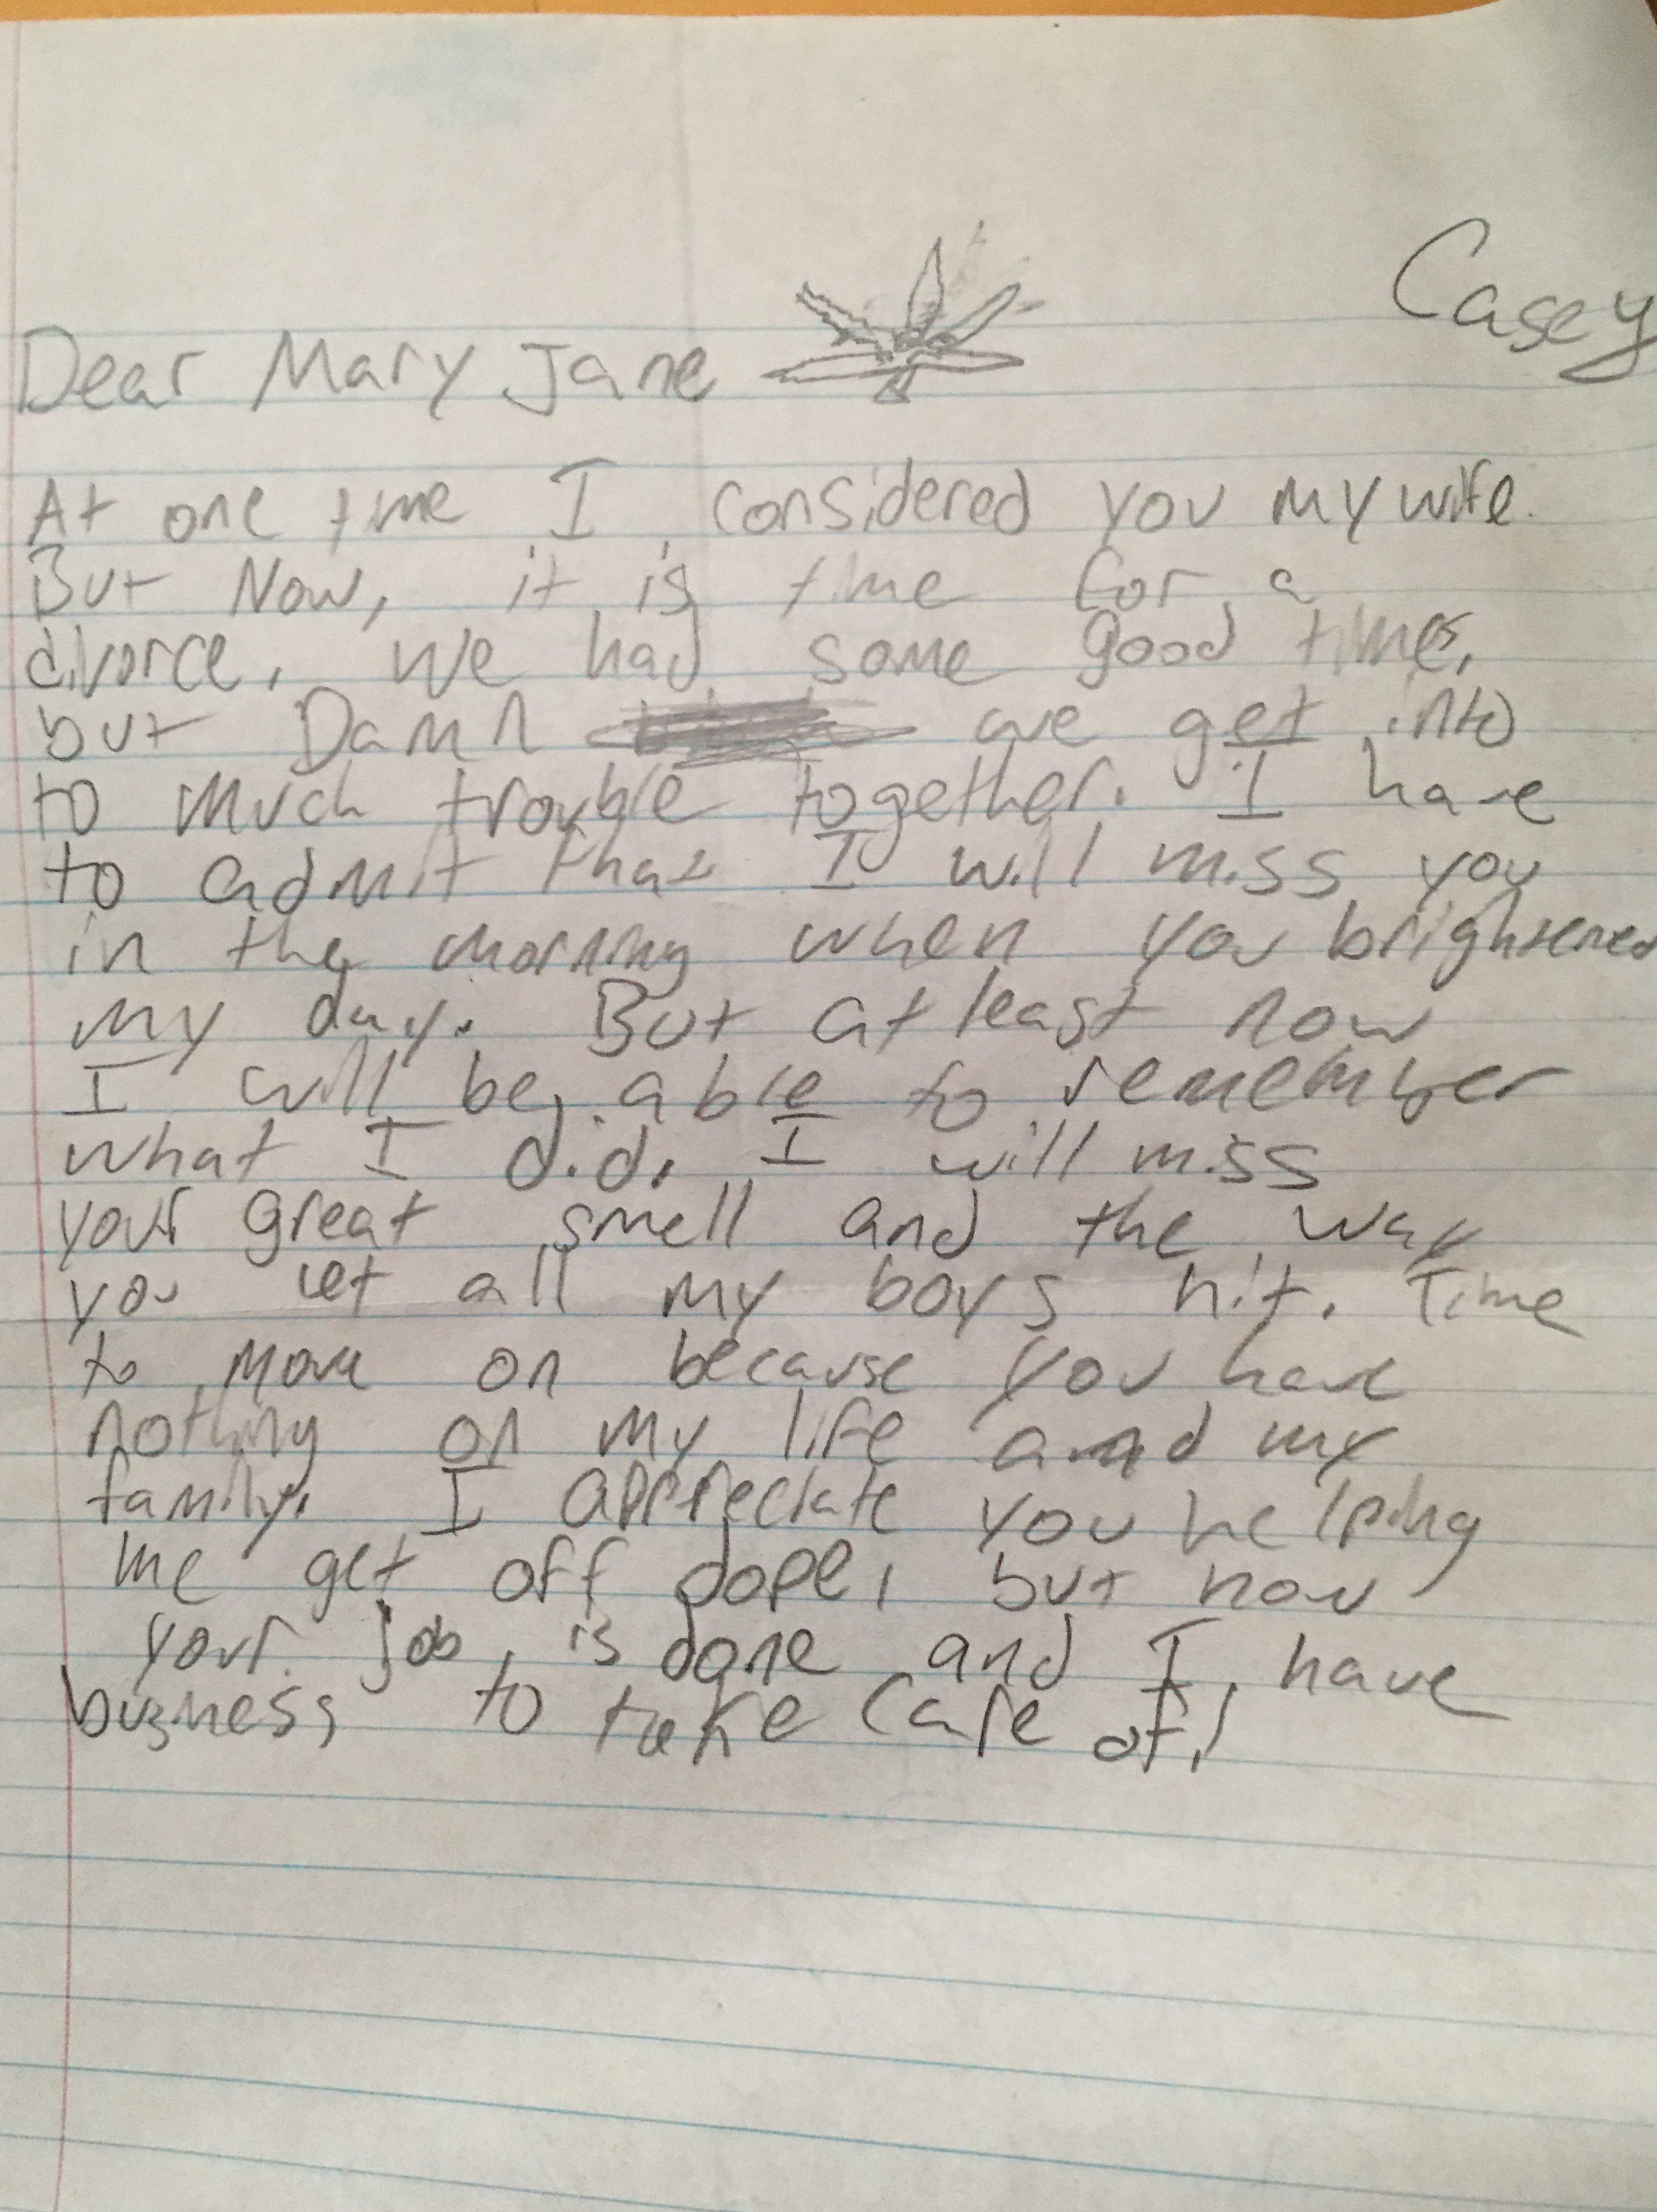 Casey
Dear Mary Jane
At one time I considered you my wife.
But Now, it is time for a
divorce. We had some good times,
but Damn we get into
to much trouble together. I have
to admit that I will miss you
in the morning when you brightened
my day. But at least now
I will be able to remember
what I did. I will miss
your great smell and the way
you let all my boys hit. Time
to move on because you have
nothing on my life and my
family. I appreciate you helping
me get off dope, but now
your job is done and I have
buisness to take care of!